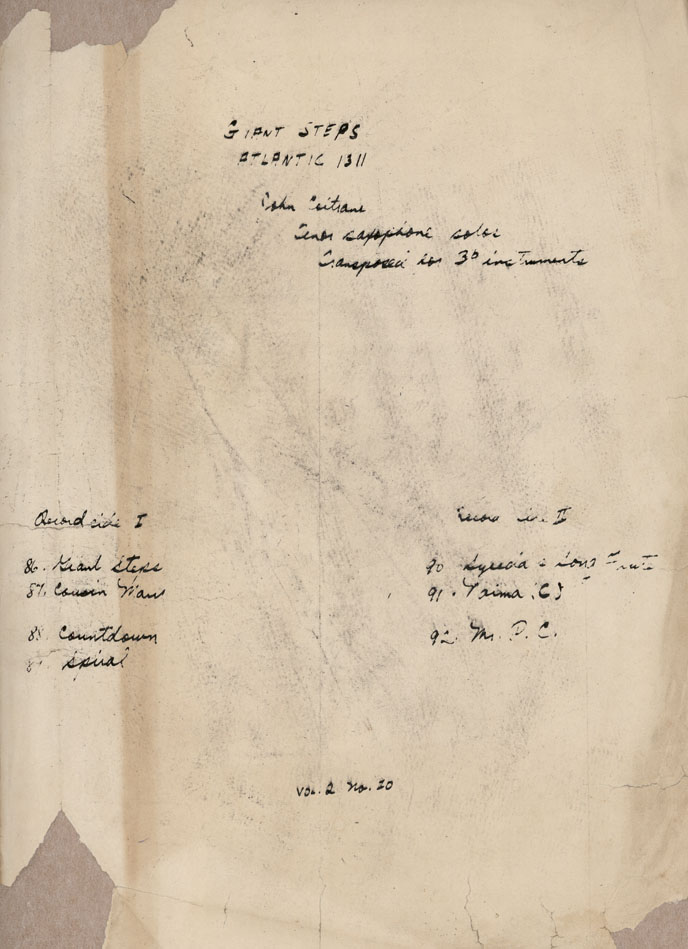 GIANT STEPS
ATLANTIC 1311
John Coltrane
Tenor saxophone solos
Transposed for B♭ instruments
Record side I
86. Giant Steps
87. Cousin Mary
88. Countdown
89. Spiral
Record II
90 Syeeda's Song Flute
91. Naima
92. Mr. P. C.
VOL. 2 No. 20